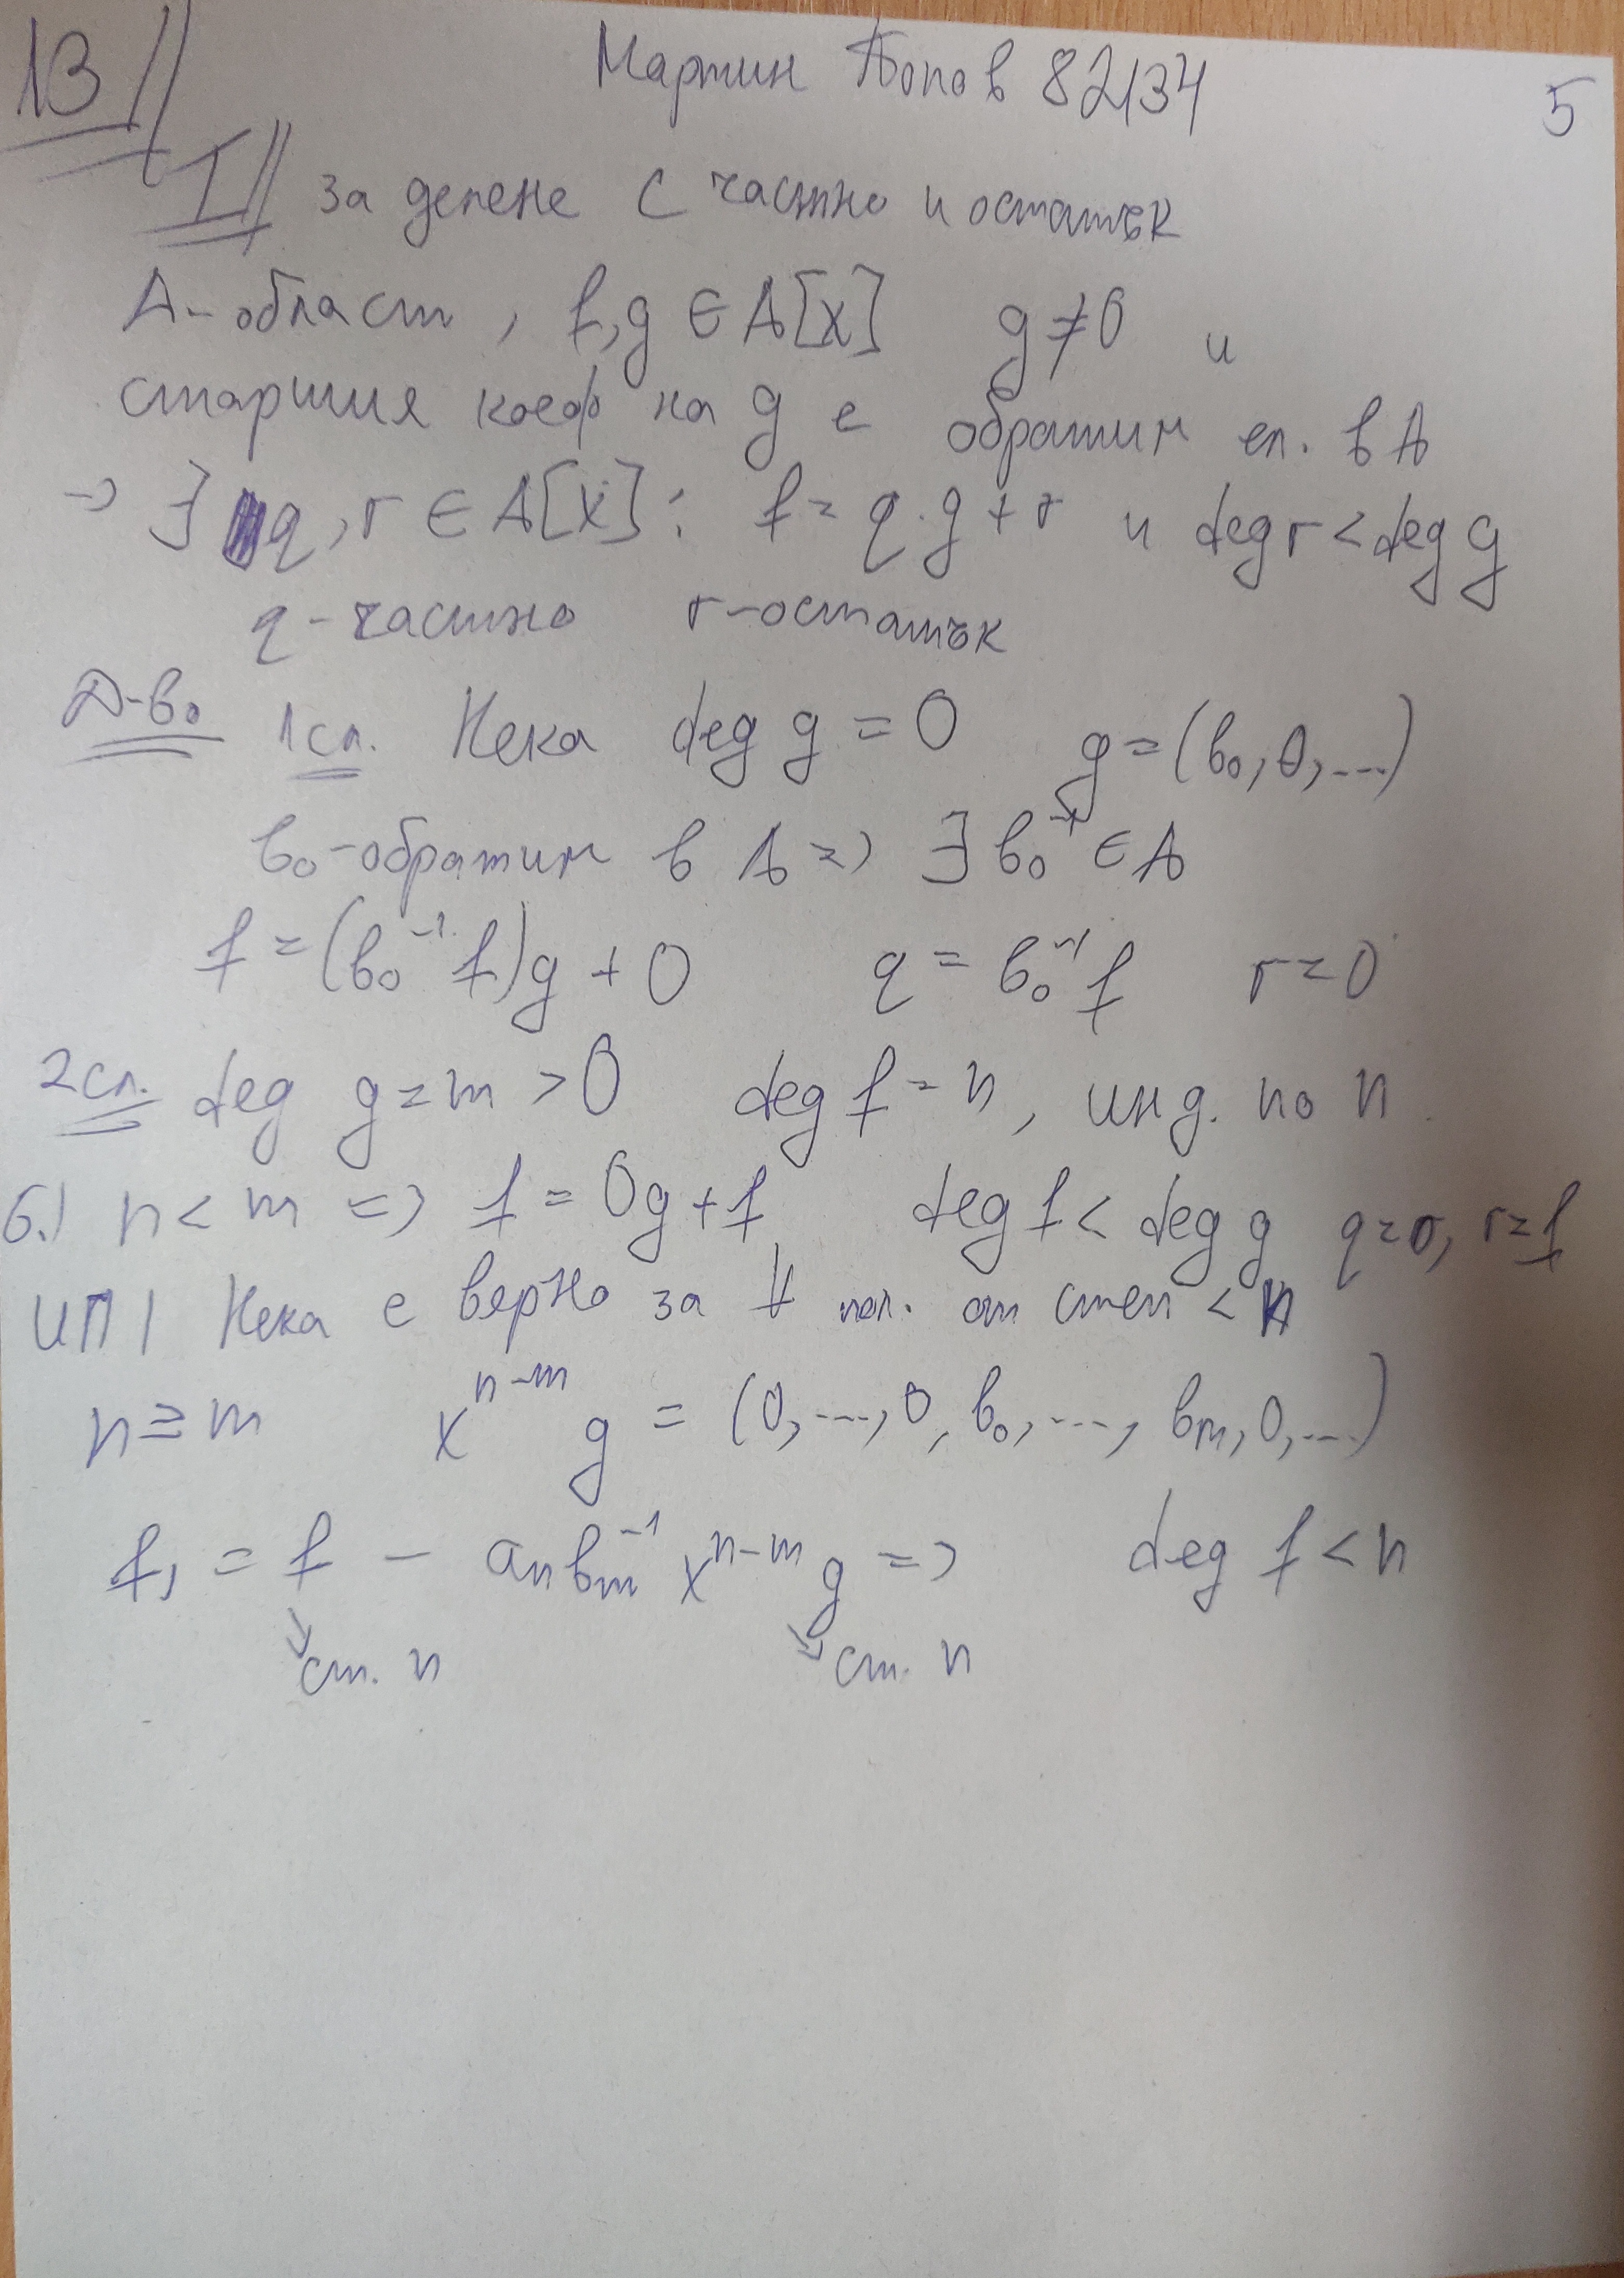 13
Мартин Попов 82134
5
I за делене с частно и остатък
A - област, f, g ∈ A[x] g ≠ 0 и
старшия коеф на g е обратим ел. в A
-> ∃ q, r ∈ A[x] : f = q.g + r и deg r < deg g
q - частно r - остатък
Д-во 1 сл. Нека deg g = 0 g = (b₀, 0, ...)
b₀ - обратим в A => ∃ b₀⁻¹ ∈ A
f = (b₀⁻¹ f)g + 0 q = b₀⁻¹ f r = 0
2 сл. deg g = m > 0 deg f = n, инд. по n
б.) n < m => f = 0g + f deg f < deg g q = 0, r = f
ИП | Нека е вярно за ∀ пол. от степ < n
n ≥ m xⁿ⁻ᵐ g = (0, ..., 0, b₀, ..., bₘ, 0, ...)
f₁ = f - aₙbₘ⁻¹ xⁿ⁻ᵐ g => deg f < n
ст. n ст. n